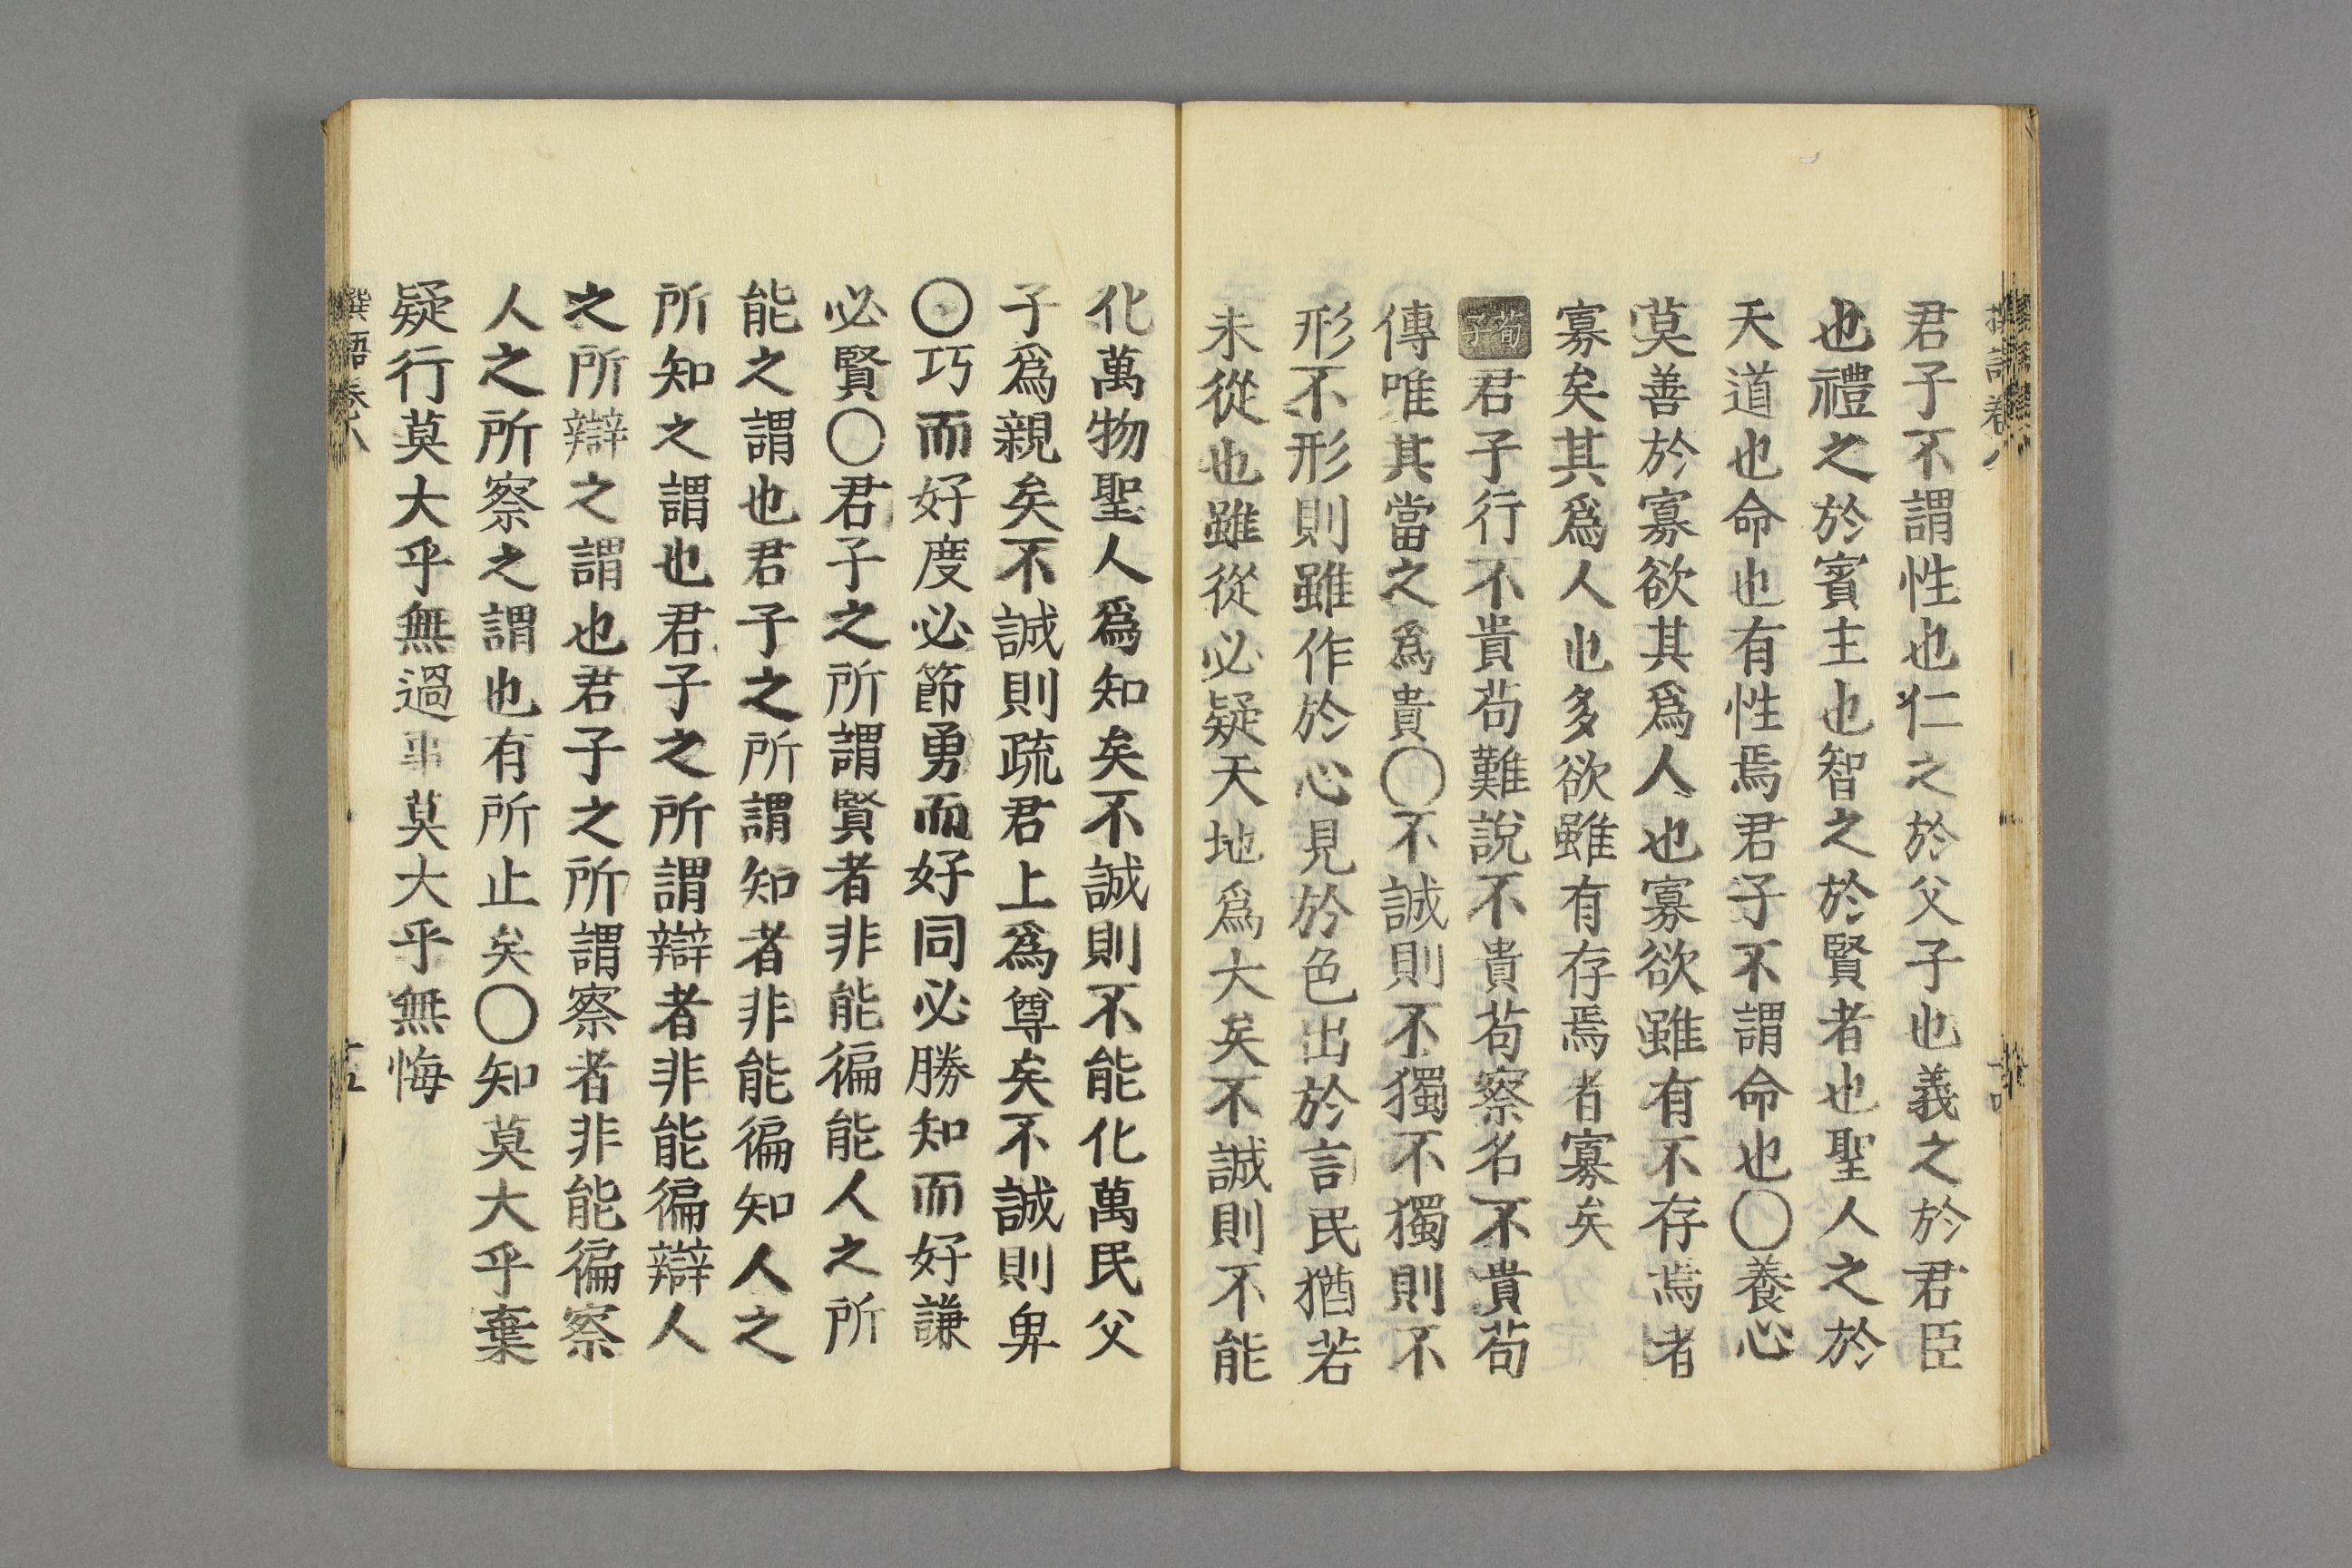 君子不謂性也仁之於父子也義之於君臣
也禮之於賓主也智之於賢者也聖人之於
天道也命也有性焉君子不謂命也〇養心
莫善於寡欲其爲人也寡欲雖有不存焉者
寡矣其爲人也多欲雖有存焉者寡矣
荀子君子行不貴苟難說不貴苟察名不貴苟
傳唯其當之爲貴〇不誠則不獨不獨則不
形不形則雖作於心見於色出於言民猶若
未從也雖從必疑天地爲大矣不誠則不能
化萬物聖人爲知矣不誠則不能化萬民父
子爲親矣不誠則疏君上爲尊矣不誠則卑
〇巧而好度必節勇而好同必勝知而好謙
必賢〇君子之所謂賢者非能徧能人之所
能之謂也君子之所謂知者非能徧知人之
所知之謂也君子之所謂辯者非能徧辯人
之所辯之謂也君子之所謂察者非能徧察
人之所察之謂也有所止矣〇知莫大乎棄
疑行莫大乎無過事莫大乎無悔
撰語卷八